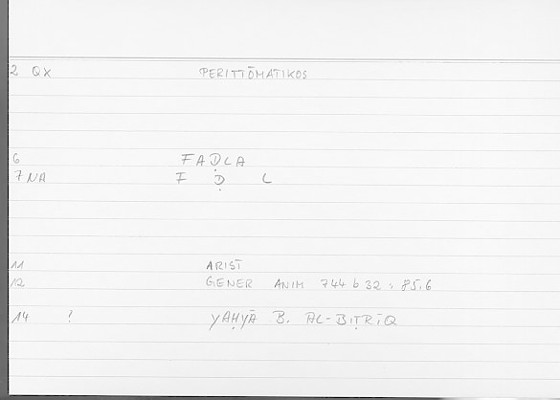 2 QX PERITTŌMATIKOS
6 FAḌLA
7 NA F Ḍ L
11 ARIST
12 GENER ANIM 744 b 32 : 85,6
14 ! YAḤYĀ B. AL-BIṬRĪQ